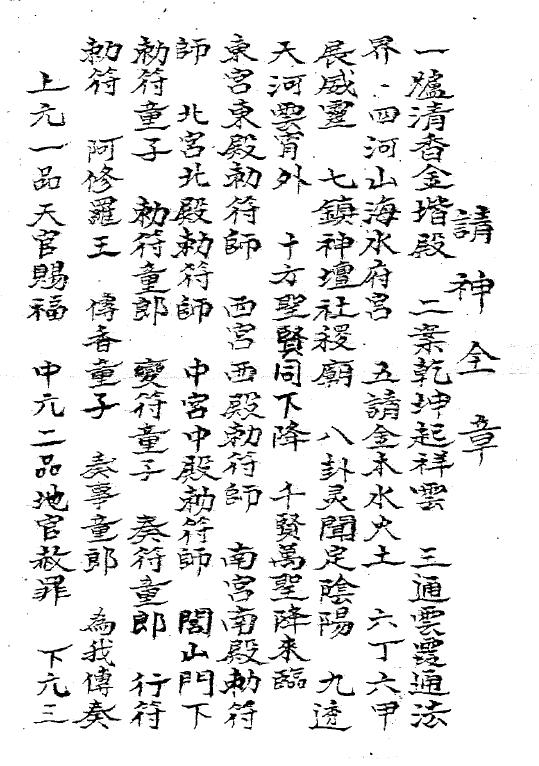 請神全章
一爐清香金堦殿　二案乾坤起祥雲　三通雲霞通法
界．四河山海水府宮　五請金木水火土　六丁六甲
展威靈　七鎮神壇社稷廟　八卦灵聞定陰陽　九透
天河雲霄外　十方聖賢同下降　千賢萬聖降來臨
東宮東殿勅符師　西宮西殿勅符師　南宮南殿勅符
師　北宮北殿勅符師　中宮中殿勅符師　閭山門下
勅符童子　勅符童郎　變符童子　奏符童郎　行符
勅符　阿修羅王　傳香童子　奏事童郎　為我傳奏
上元一品天官賜福　中元二品地官赦罪　下元三